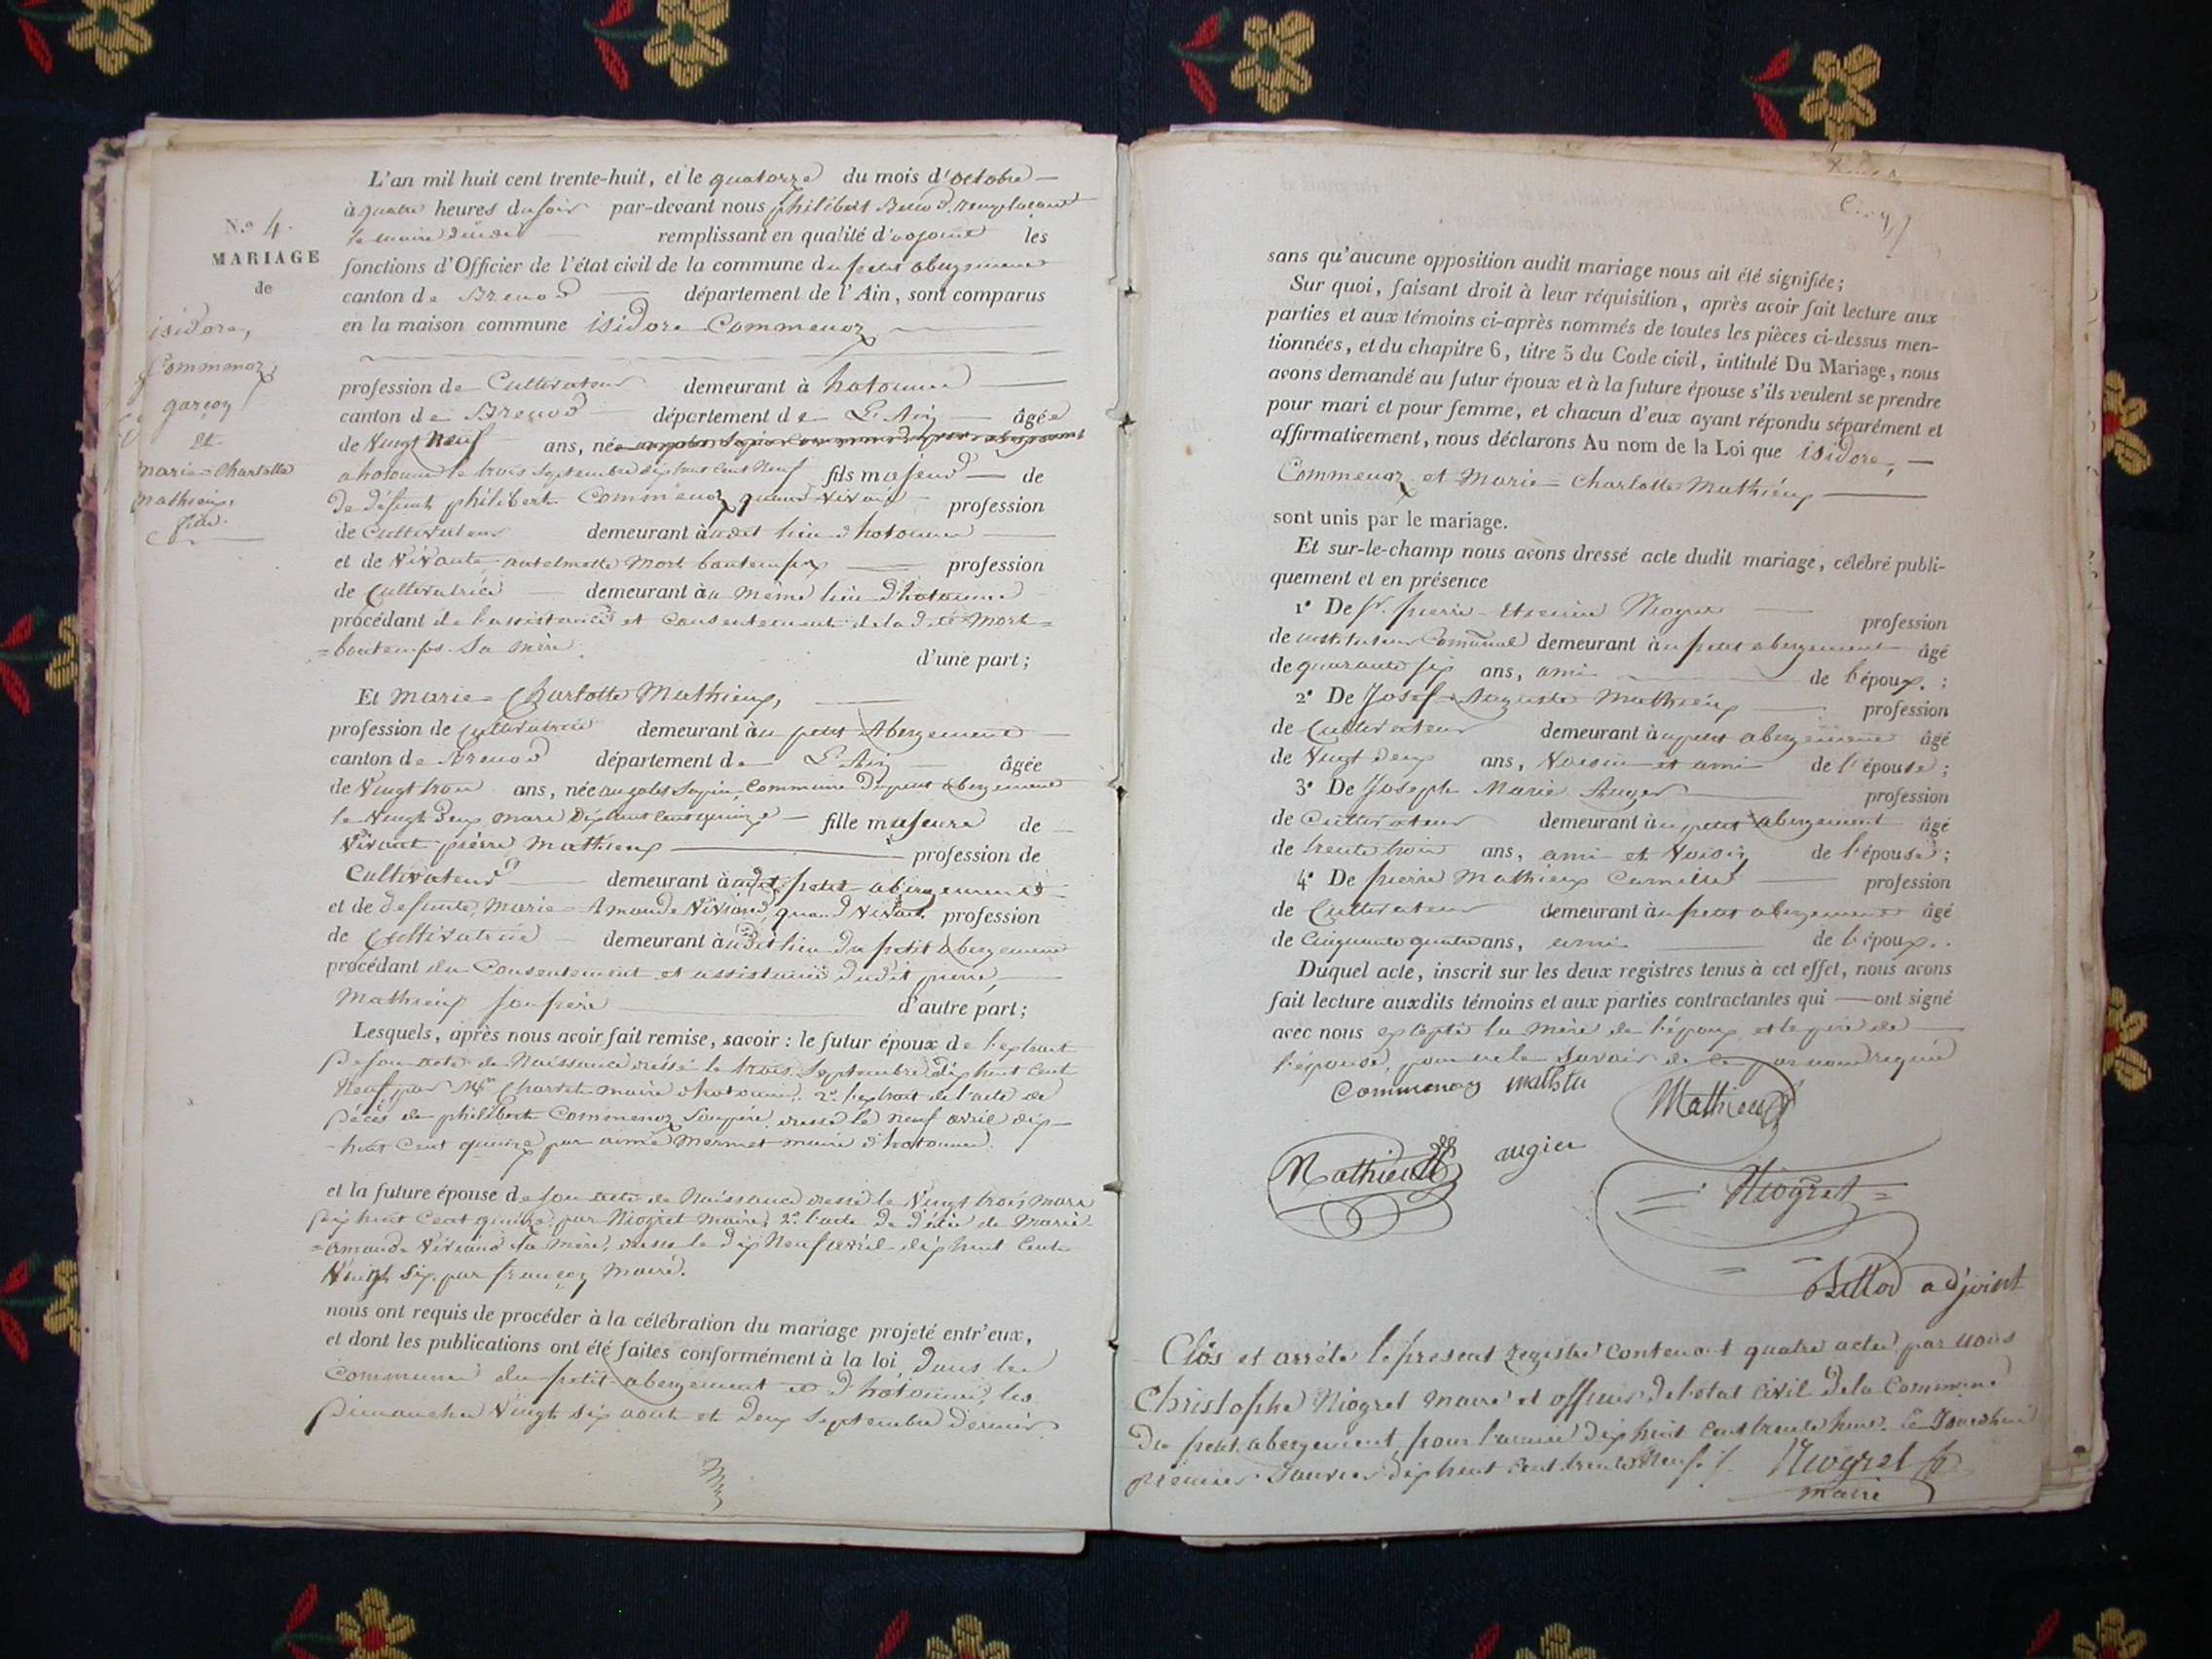 N.o 4.
MARIAGE
de
isidore,
Commenoz,
garçon
Et
marie=Charlotte
Mathieux,
fille.
L'an mil huit cent trente-huit, et le quatorze du mois d'octobre
à quatre heures du soir par-devant nous philibert remplaçant
le maire remplissant en qualité d'adjoint les
fonctions d'Officier de l'état civil de la commune du petit abergement
canton de Brenod département de l'Ain, sont comparus
en la maison commune isidore Commenoz
profession de Cultivateur demeurant à hotonne
canton de Brenod département de L'Ain âgé
de Vingt Neuf ans, né
a hotonne le trois Septembre dix huit cent Neuf fils majeur de
de défunt philibert Commenoz quand vivait profession
de Cultivateur demeurant audit lieu d'hotonne
et de Vivante antelmette Mort bontemps profession
de Cultivatrice demeurant au même lieu d'hotonne
procédant de l'assistance et Consentement de la dite Mort=
=bontemps Sa mère d'une part;
Et marie=Charlotte Mathieux,
profession de Cultivatrice demeurant au petit Abergement
canton de Brenod département de L'Ain âgée
de Vingt trois ans, née Commune du petit abergement
le Vingt deux mars Dix huit Cent quinze fille majeure de
Vivant pierre Mathieux profession de
Cultivateur demeurant à petit abergement
et de defunte, Marie=Amande Viviand, quand vivait profession
de Cultivatrice demeurant audit lieu du petit abergement
procédant du Consentement et assistance dudit pierre
Mathieux son père d'autre part;
Lesquels, après nous avoir fait remise, savoir: le futur époux de l'extrait
de son acte de Naissance dressé le trois Septembre dix huit cent
Neuf, par Mr Charvet maire d'hotonne, 2° l'extrait de l'acte de
décès de philibert Commenoz Son père, dressé le neuf avril dix
huit Cent quinze par aimé Mermet maire d'hotonne.
et la future épouse de son acte de Naissance dressé le Vingt trois mars
dix huit Cent quinze par Niogret maire, 2° l'acte de décès de Marie=
=amande Viviand Sa mère, dressé le dix Neuf avril dix huit Cent
Vingt Six par françon Maire.
nous ont requis de procéder à la célébration du mariage projeté entr'eux,
et dont les publications ont été faites conformément à la loi, dans les
communes du petit abergement et d'hotonne, les
Dimanches Vingt Six aout et deux Septembre dernier.
sans qu'aucune opposition audit mariage nous ait été signifiée;
Sur quoi, faisant droit à leur réquisition, après avoir fait lecture aux
parties et aux témoins ci-après nommés de toutes les pièces ci-dessus men-
tionnées, et du chapitre 6, titre 5 du Code civil, intitulé Du Mariage, nous
avons demandé au futur époux et à la future épouse s'ils veulent se prendre
pour mari et pour femme, et chacun d'eux ayant répondu séparément et
affirmativement, nous déclarons Au nom de la Loi que isidore,
Commenoz et Marie=Charlotte Mathieux
sont unis par le mariage.
Et sur-le-champ nous avons dressé acte dudit mariage, célébré publi-
quement et en présence
1° De Sr. pierre Etienne Niogret profession
de instituteur Communal demeurant au petit abergement âgé
de quarante six ans, ami de l'époux.;
2° De Josef=Auguste Mathieux profession
de Cultivateur demeurant au petit abergement âgé
de Vingt deux ans, Voisin et ami de l'épouse;
3° De Joseph Marie Auger profession
de Cultivateur demeurant au petit abergement âgé
de trente trois ans, ami et Voisin de l'épouse;
4° De pierre Mathieux Camille profession
de Cultivateur demeurant au petit abergement âgé
de Cinquante quatre ans, ami de l'époux..
Duquel acte, inscrit sur les deux registres tenus à cet effet, nous avons
fait lecture auxdits témoins et aux parties contractantes qui ont signé
avec nous excepté la mère de l'époux et le père de
l'épouse, pour ne le Savoir de ce par nous requis
Commenoz Mathieux
Mathieux augier
Niogret
adjoint
Clos et arrété le present registre contenant quatre actes par nous
Christophe Niogret maire et officier de l'état civil de la Commune
du petit abergement pour l'année dix huit cent trente huit. Ce Jourd'hui
premier Janvier dix huit Cent trente Neuf. Niogret
maire